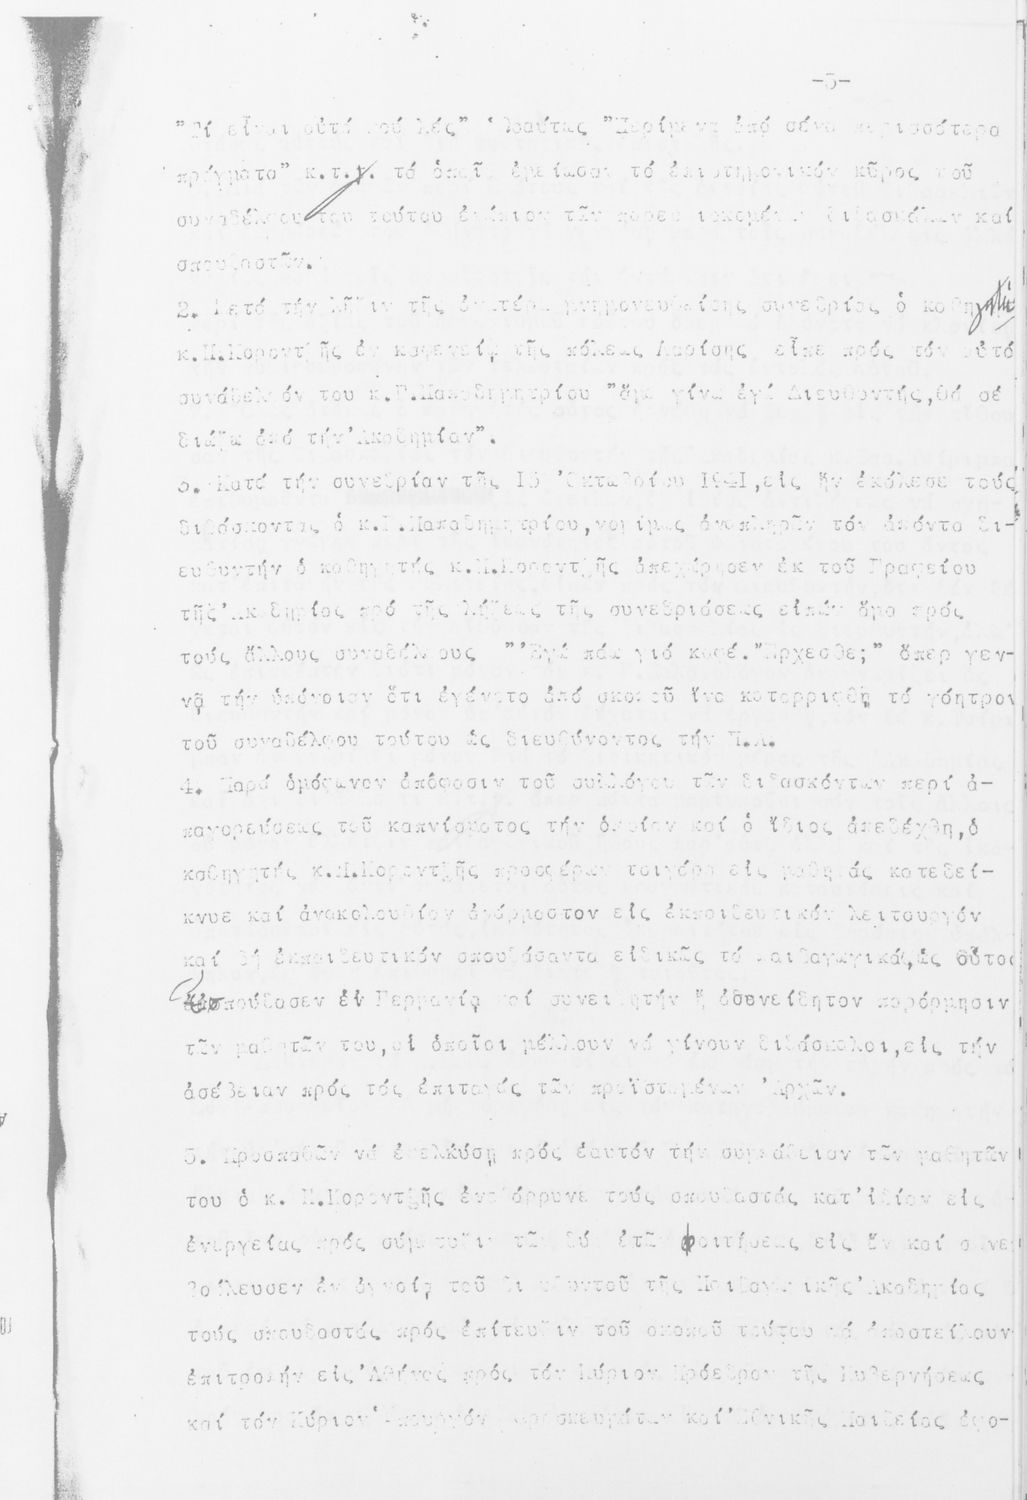 -5-
"Τί εἶναι αὐτά πού λές" ὡσαύτως "Περίμενα ἀπό σένα περισσότερα
πράγματα" κ.τ.λ. τά ὁποῖα ἐμείωσαν τό ἐπιστημονικόν κῦρος τοῦ
συναδέλφου του τούτου ἐνώπιον τῶν διδασκάλων καί
σπουδαστῶν.
2. Μετά τήν λῆξιν τῆς ἀνωτέρω μνημονευθείσης συνεδρίας ὁ καθηγητής
κ.Π.Κοροντζῆς ἐν καφενείῳ τῆς πόλεως Λαρίσης εἶπε πρός τόν αὐτό
συνάδελφόν του κ.Γ.Παπαδημητρίου "ἅμα γίνω ἐγώ Διευθυντής,θά σέ
διώξω ἀπό τήν'Ακαδημίαν".
3. Κατά τήν συνεδρίαν τῆς 13 'Οκτωβρίου 1941,εἰς ἥν ἐκάλεσε τούς
διδάσκοντας ὁ κ.Γ.Παπαδημητρίου,νομίμως ἀναπληρῶν τόν ἀπόντα δι-
ευθυντήν ὁ καθηγητής κ.Π.Κοροντζῆς ἀπεχώρησεν ἐκ τοῦ Γραφείου
τῆς'Ακαδημίας πρό τῆς λήξεως τῆς συνεδριάσεως εἰπών ἅμα πρός
τούς ἄλλους συναδέλφους "'Εγώ πάω γιά καφέ.Ἔρχεσθε;" ὅπερ γεν-
νᾷ τήν ὑπόνοιαν ὅτι ἐγένετο ἀπό σκοποῦ ἵνα καταρριφθῇ τό γόητρον
τοῦ συναδέλφου τούτου ὡς διευθύνοντος τήν Π.Α.
4. Παρά ὁμόφωνον ἀπόφασιν τοῦ συλλόγου τῶν διδασκόντων περί ἀ-
παγορεύσεως τοῦ καπνίσματος τήν ὁποίαν καί ὁ ἴδιος ἀπεδέχθη,ὁ
καθηγητής κ.Π.Κοροντζῆς προσφέρων τσιγάρα εἰς μαθητάς κατεδεί-
κνυε καί ἀνακολουθίαν ἀνάρμοστον εἰς ἐκπαιδευτικόν λειτουργόν
καί δή ἐκπαιδευτικόν σπουδάσαντα εἰδικῶς τά παιδαγωγικά,ὡς οὗτος
ἐσπούδασεν ἐν Γερμανίᾳ καί συνειδητήν ἤ ἀσυνείδητον παρόρμησιν
τῶν μαθητῶν του,οἱ ὁποῖοι μέλλουν νά γίνουν διδάσκαλοι,εἰς τήν
ἀσέβειαν πρός τάς ἐπιταγάς τῶν προϊσταμένων 'Αρχῶν.
5. Προσπαθῶν νά ἐφελκύσῃ πρός ἑαυτόν τήν συμπάθειαν τῶν μαθητῶν
του ὁ κ. Π.Κοροντζῆς ἐνεθάρρυνε τούς σπουδαστάς κατ'ἰδίαν εἰς
ἐνεργείας πρός σύμπτυξιν τῶν δύο ἐτῶν φοιτήσεως εἰς ἕν καί συνε
βούλευσεν ἐν ἀγνοίᾳ τοῦ διευθυντοῦ τῆς Παιδαγωγικῆς'Ακαδημίας
τούς σπουδαστάς πρός ἐπίτευξιν τοῦ σκοποῦ τούτου νά ἀποστείλουν
ἐπιτροπήν εἰς'Αθήνας πρός τόν Κύριον Πρόεδρον τῆς Κυβερνήσεως
καί τόν Κύριον Ὑπουργόν Θρησκευμάτων καί'Εθνικῆς Παιδείας ἀφο-